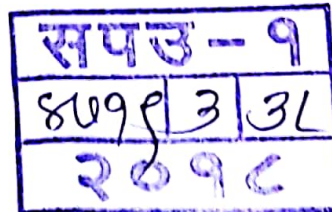 सपउ - १
४७१९ ३ ३८
२०१८